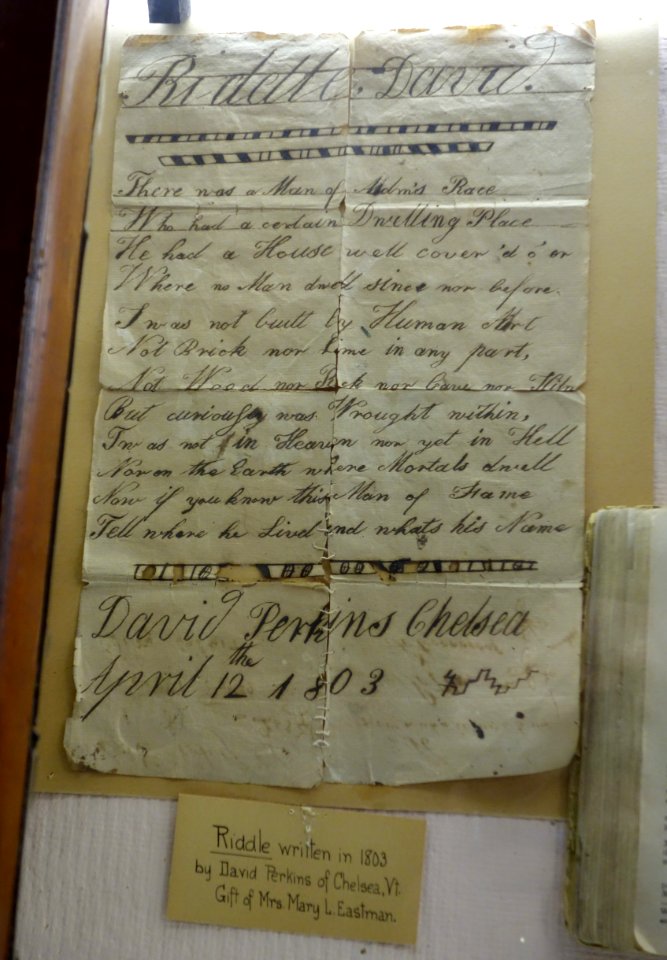 Riddle. David.
There was a Man of Adm's Race
Who had a certain Dwelling Place
He had a House well cover'd o'er
Where no Man dwell since nor before.
Twas not built by Human Art
Not Brick nor Lime in any part,
Not Wood nor Rock nor Cave nor Kiln
But curiously was Wrought within,
Twas not in Heaven nor yet in Hell
Nor on the Earth where Mortals dwell
Now if you know this Man of Fame
Tell where he Lived and whats his Name
David Perkins Chelsea
April 12 the 1803
Riddle written in 1803
by David Perkins of Chelsea, Vt.
Gift of Mrs. Mary L. Eastman.